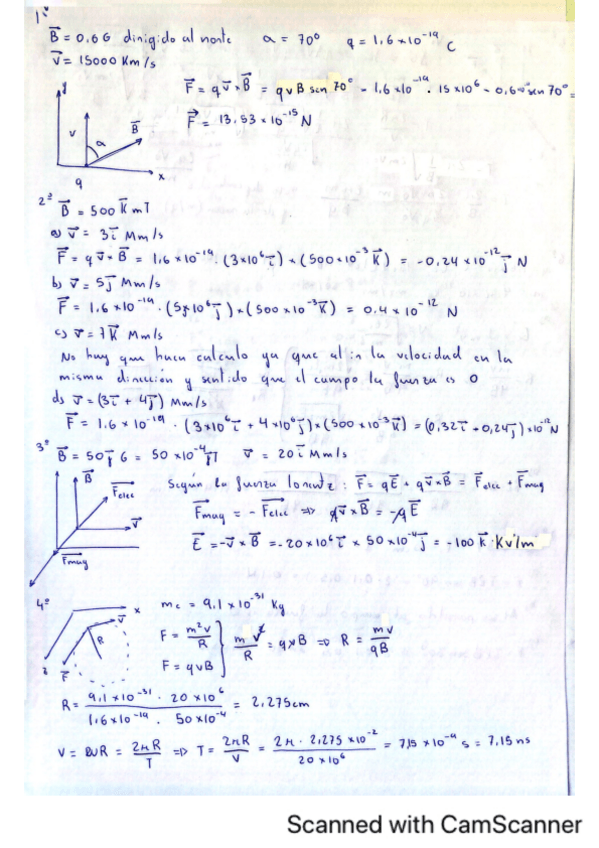 1º
B⃗ = 0.6 G dirigido al norte   α = 70º   q = 1,6 × 10⁻¹⁹ C
v⃗ = 15000 Km/s
F⃗ = q v⃗ × B⃗ = q v B sen 70º
F⃗ = 13,53 × 10⁻¹⁵ N
y
v
α
B⃗
q
x
2º B⃗ = 500 k⃗ mT
a) v⃗ = 3i⃗ Mm/s
F⃗ = q v⃗ × B⃗ = 1,6 × 10⁻¹⁹ · (3×10⁶ i⃗) × (500×10⁻³ k⃗) = -0,24 × 10⁻¹² j⃗ N
b) v⃗ = 5j⃗ Mm/s
F⃗ = 1,6 × 10⁻¹⁹ · (5×10⁶ j⃗) × (500 × 10⁻³ k⃗) = 0,4 × 10⁻¹² N
c) v⃗ = 7k⃗ Mm/s
No hay que hacer calculo ya que al ir la velocidad en la
misma direccion y sentido que el campo la fuerza es 0
d) v⃗ = (3i⃗ + 4j⃗) Mm/s
F⃗ = 1,6 × 10⁻¹⁹ · (3×10⁶ i⃗ + 4×10⁶ j⃗) × (500 × 10⁻³ k⃗) = (0,32i⃗ - 0,24j⃗) × 10⁻¹² N
3º B⃗ = 50j⃗ G = 50 × 10⁻⁴ j⃗ T   v⃗ = 20i⃗ Mm/s
B⃗
F⃗elec
v⃗
F⃗mag
Según la fuerza lorentz: F⃗ = qE⃗ + q v⃗ × B⃗ = F⃗elec + F⃗mag
F⃗mag = - F⃗elec ⇒ q v⃗ × B⃗ = -q E⃗
E⃗ = -v⃗ × B⃗ = -20×10⁶ i⃗ × 50×10⁻⁴ j⃗ = -100 k⃗ Kv/m
4º
x
v⃗
R
z
F⃗
me = 9,1 × 10⁻³¹ Kg
F = m²v/R
F = qvB
m v²/R = qvB ⇒ R = mv/qB
R = 9,1 × 10⁻³¹ · 20 × 10⁶ / 1,6 × 10⁻¹⁹ · 50 × 10⁻⁴ = 2,275 cm
v = ωR = 2πR/T ⇒ T = 2πR/v = 2π · 2,275 × 10⁻² / 20 × 10⁶ = 7,15 × 10⁻⁹ s = 7,15 ns
Scanned with CamScanner